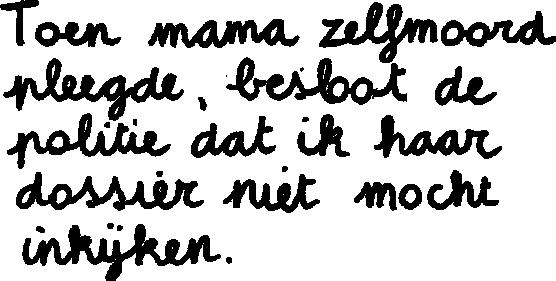 Toen mama zelfmoord
pleegde, besloot de
politie dat ik haar
dossier niet mocht
inkijken.